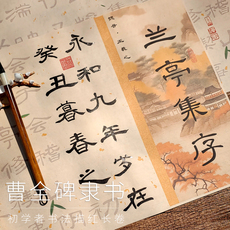 兰亭集序
永和九年岁在
癸丑暮春之
曹全碑隶书
初学者书法描红长卷